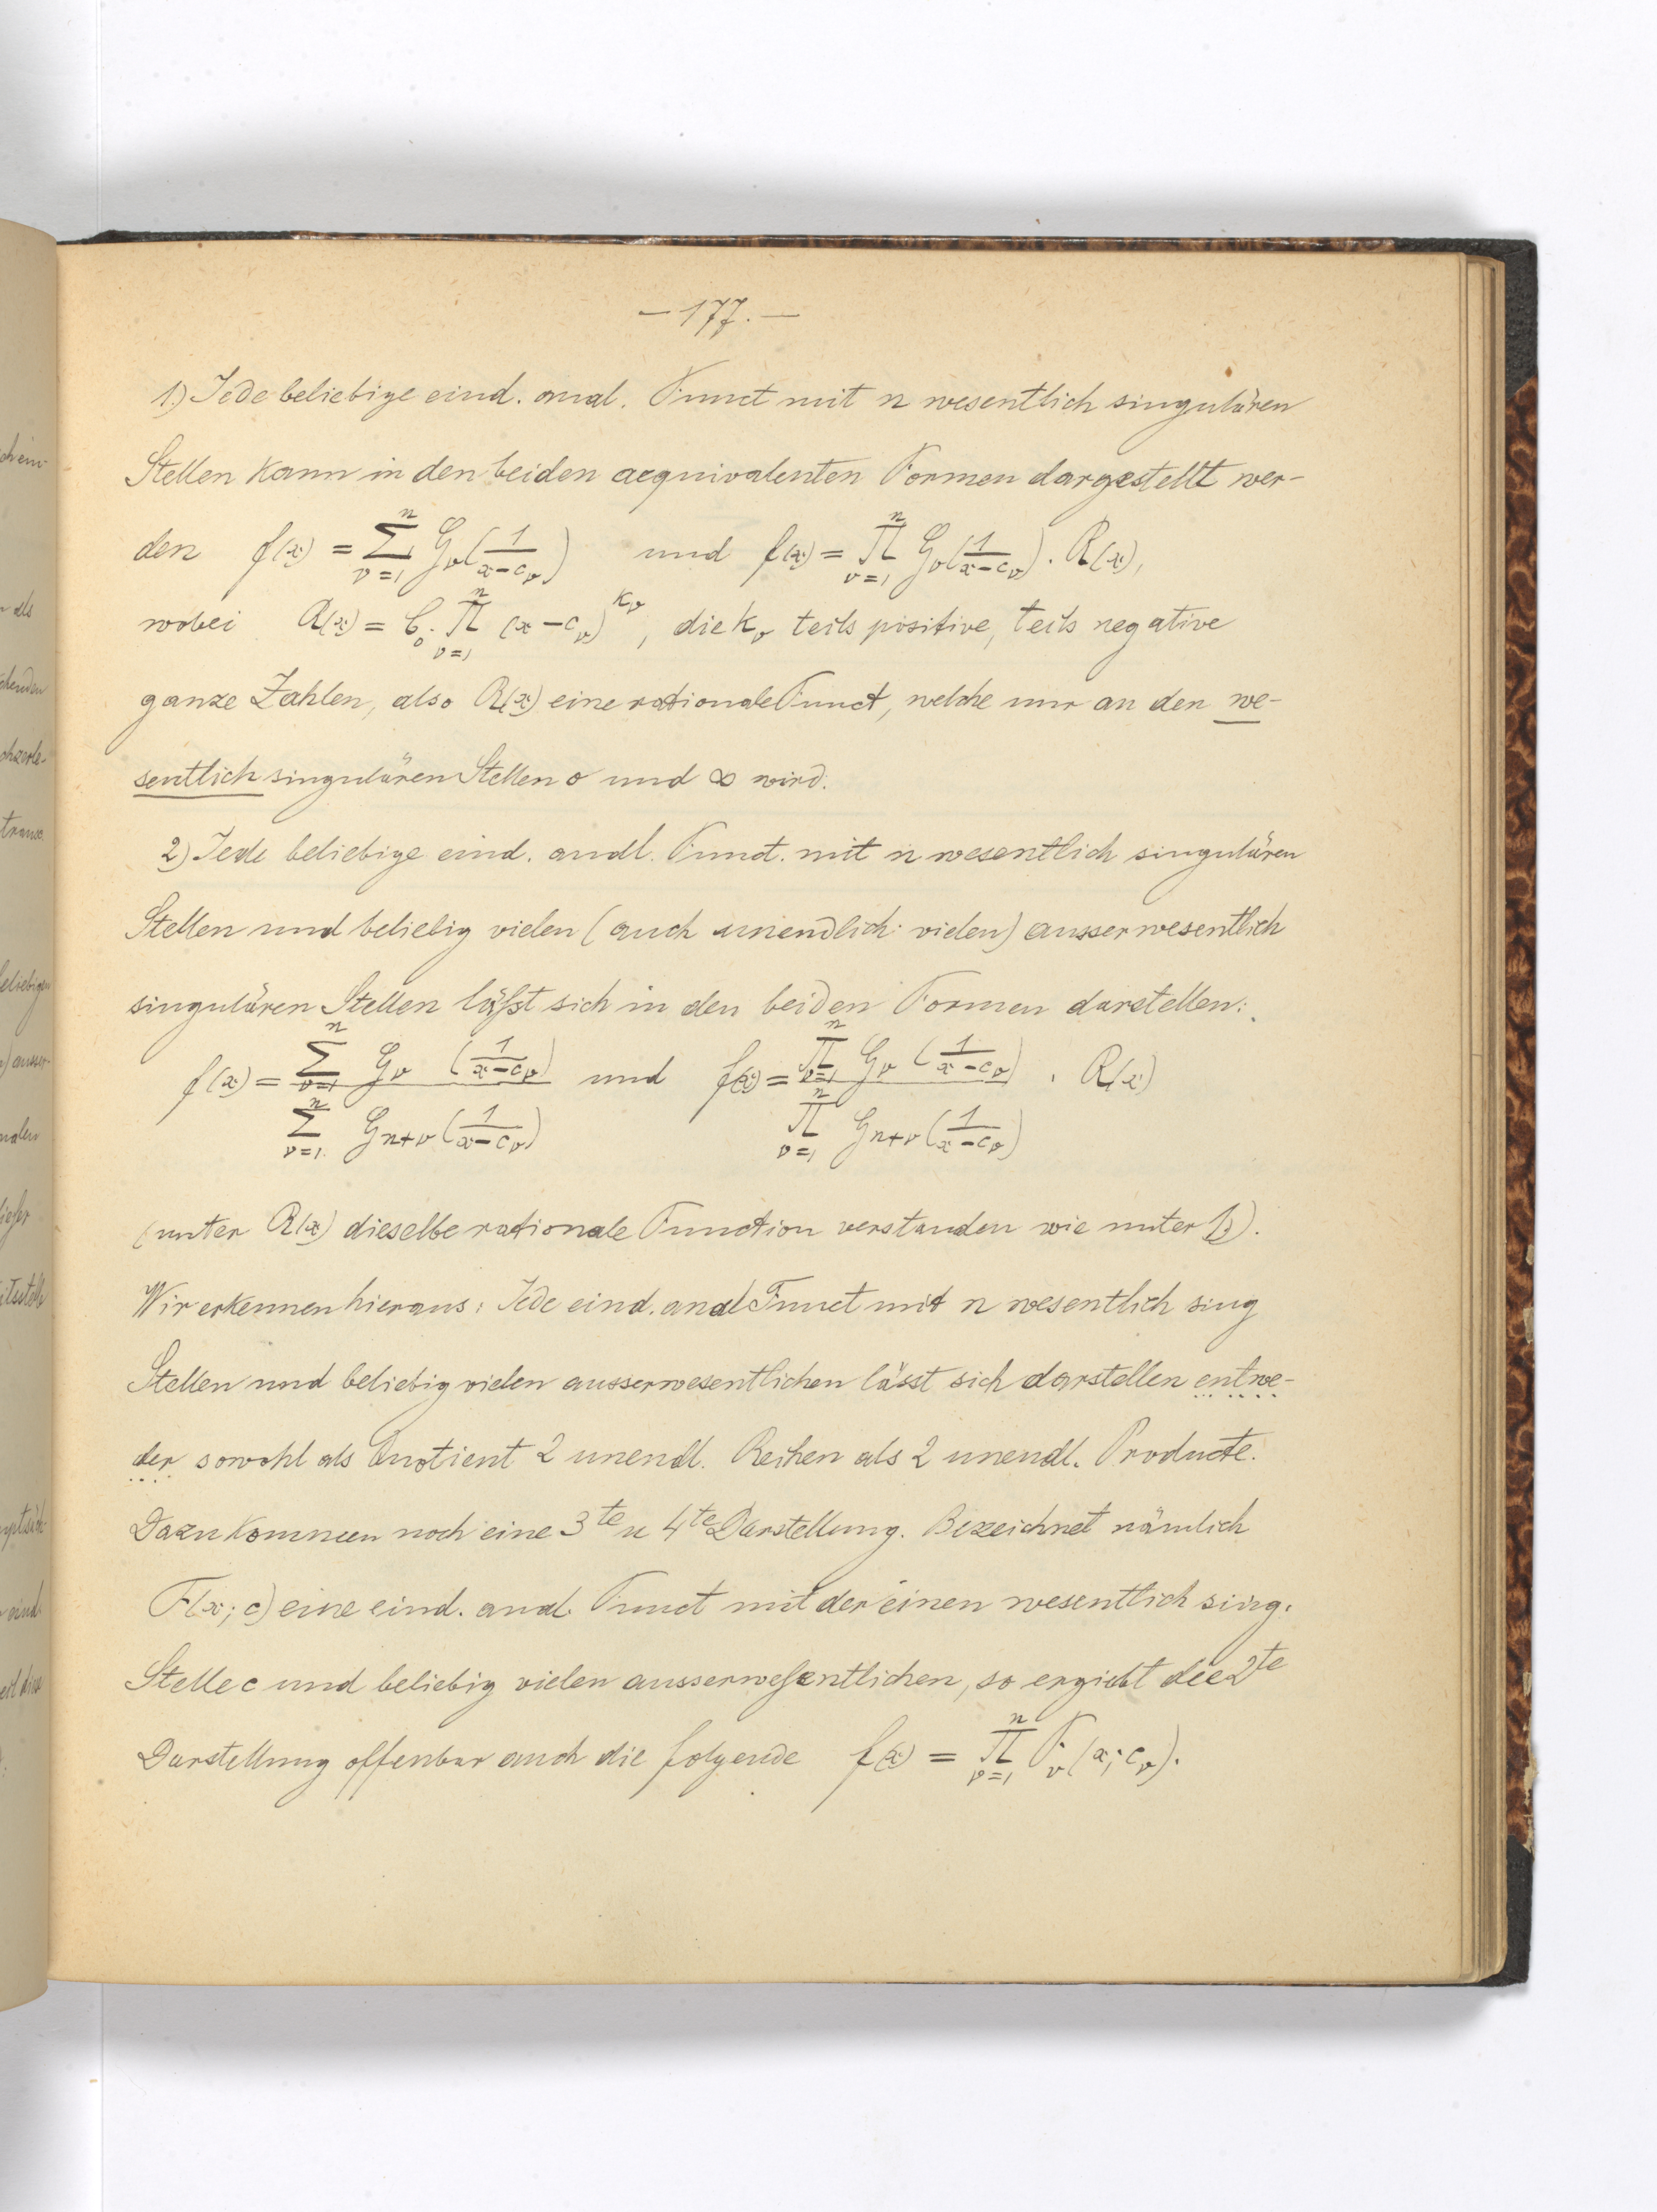 — 177. —
1.) Jede beliebige eind. anal. Funct mit n wesentlich singulären
Stellen kann in den beiden aequivalenten Formen dargestellt wer-
den f(x) = \sum_{ν=1}^{n} G_ν(\frac{1}{x-c_ν}) und f(x) = \prod_{ν=1}^{n} G_ν(\frac{1}{x-c_ν}) . R(x),
wobei R(x) = C_0 . \prod_{ν=1}^{n} (x-c_ν)^{k_ν}, die k_ν teils positive, teils negative
ganze Zahlen, also R(x) eine rationale Funct, welche nur an den we-
sentlich singulären Stellen o und ∞ wird.
2) Jede beliebige eind. anal. Funct. mit n wesentlich singulären
Stellen und beliebig vielen (auch unendlich vielen) ausserwesentlich
singulären Stellen läßt sich in den beiden Formen darstellen:
f(x) = \frac{\sum_{ν=1}^{n} G_ν (\frac{1}{x-c_ν})}{\sum_{ν=1}^{n} G_{n+ν} (\frac{1}{x-c_ν})} und f(x) = \frac{\prod_{ν=1}^{n} G_ν (\frac{1}{x-c_ν})}{\prod_{ν=1}^{n} G_{n+ν} (\frac{1}{x-c_ν})} . R(x)
(unter R(x) dieselbe rationale Function verstanden wie unter 1.).
Wir erkennen hieraus: Jede eind. anal Funct mit n wesentlich sing
Stellen und beliebig vielen ausserwesentlichen lässt sich darstellen entwe-
der sowohl als Quotient 2 unendl. Reihen als 2 unendl. Producte.
Dazu kommen noch eine 3te u 4te Darstellung. Bezeichnet nämlich
F(x; c) eine eind. anal. Funct mit der einen wesentlich sing.
Stelle c und beliebig vielen ausserwesentlichen, so ergiebt die 2te
Darstellung offenbar auch die folgende f(x) = \prod_{ν=1}^{n} F_ν (x; c_ν).